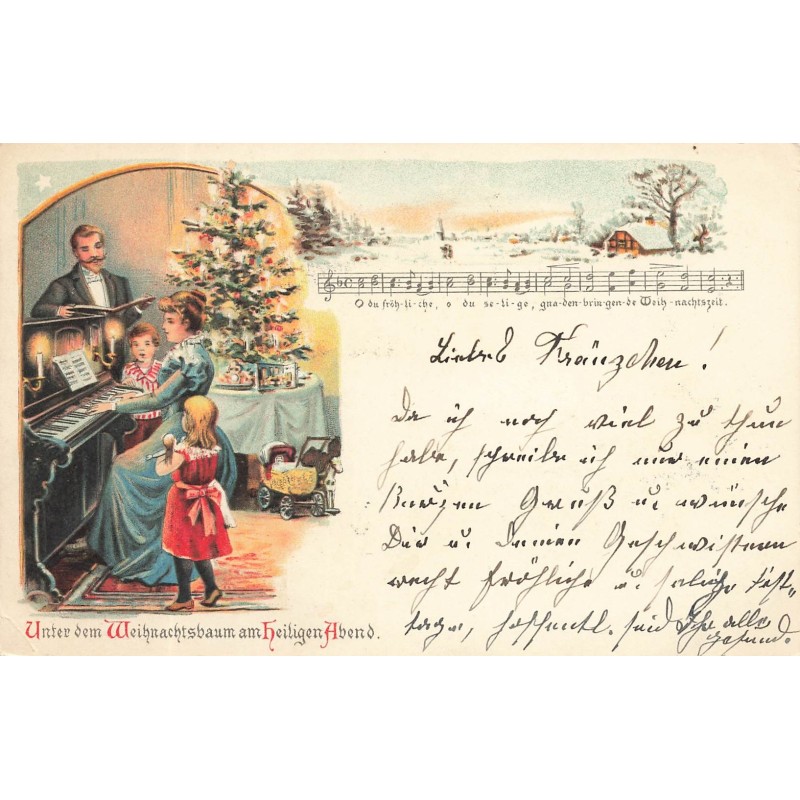 O du fröh-li-che, o du se-li-ge, gna-den-brin-gen-de Weih-nachtszeit.
Liebes Fränzchen!
Da ich noch viel zu thun
habe, schreibe ich nur einen
kurzen Gruß u. wünsche
Dir u. Deinen Geschwistern
recht fröhliche u. selige Fest-
tage, hoffentl. seid Ihr alle
gesund.
Unter dem Weihnachtsbaum am Heiligen Abend.